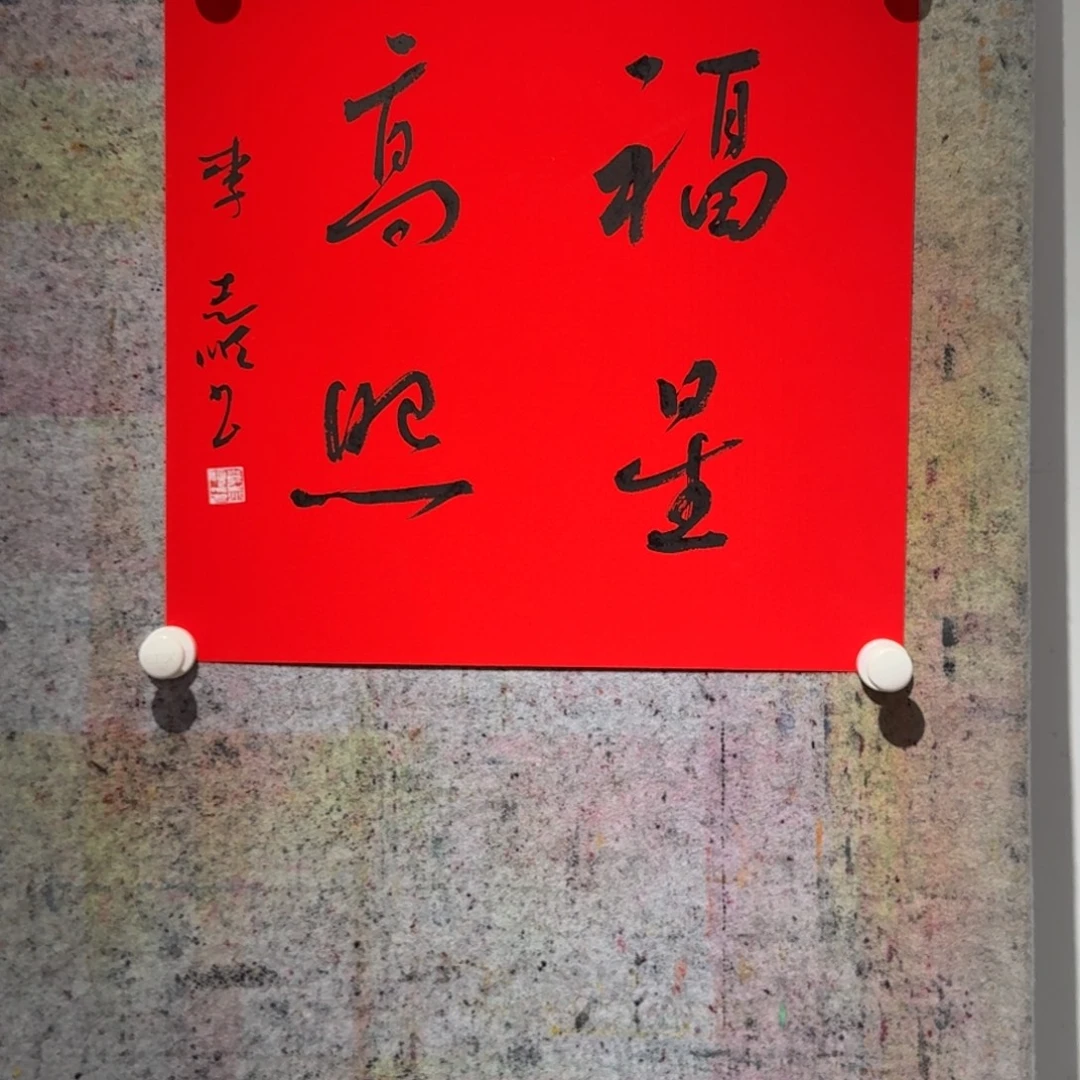 福星
高照
李志顺书